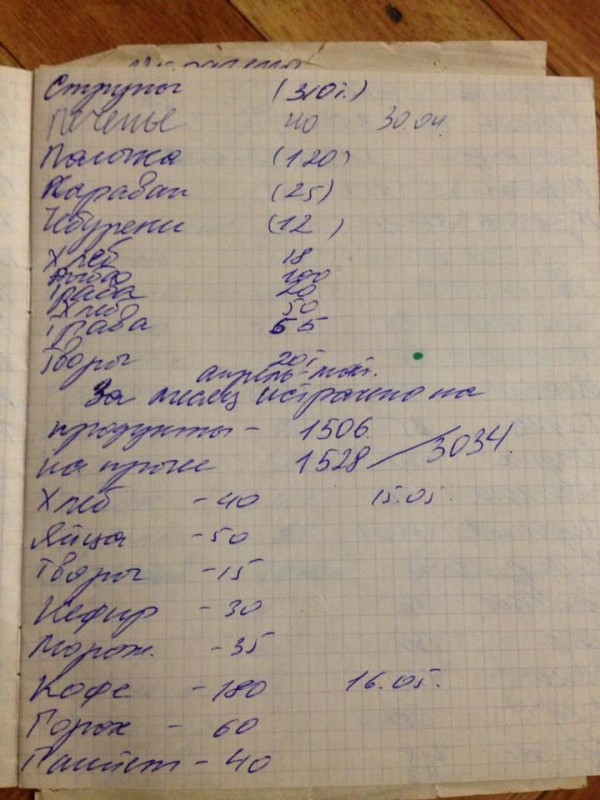 Струны (310г.)
Печенье 40 30.04
Палочка (120)
Караван (25)
Чебурени (12)
Хлеб 18
Рыба 100
Трава 20
Хлеб 50
Трава 55
Творог 20г
апрель-май.
За месяц истрачено на
продукты - 1506.
на проче 1528 / 3034.
Хлеб - 40 15.05.
Яйца - 50
Творог - 15
Кефир - 30
Морож. - 35
Кофе - 180 16.05.
Горох - 60
- 40